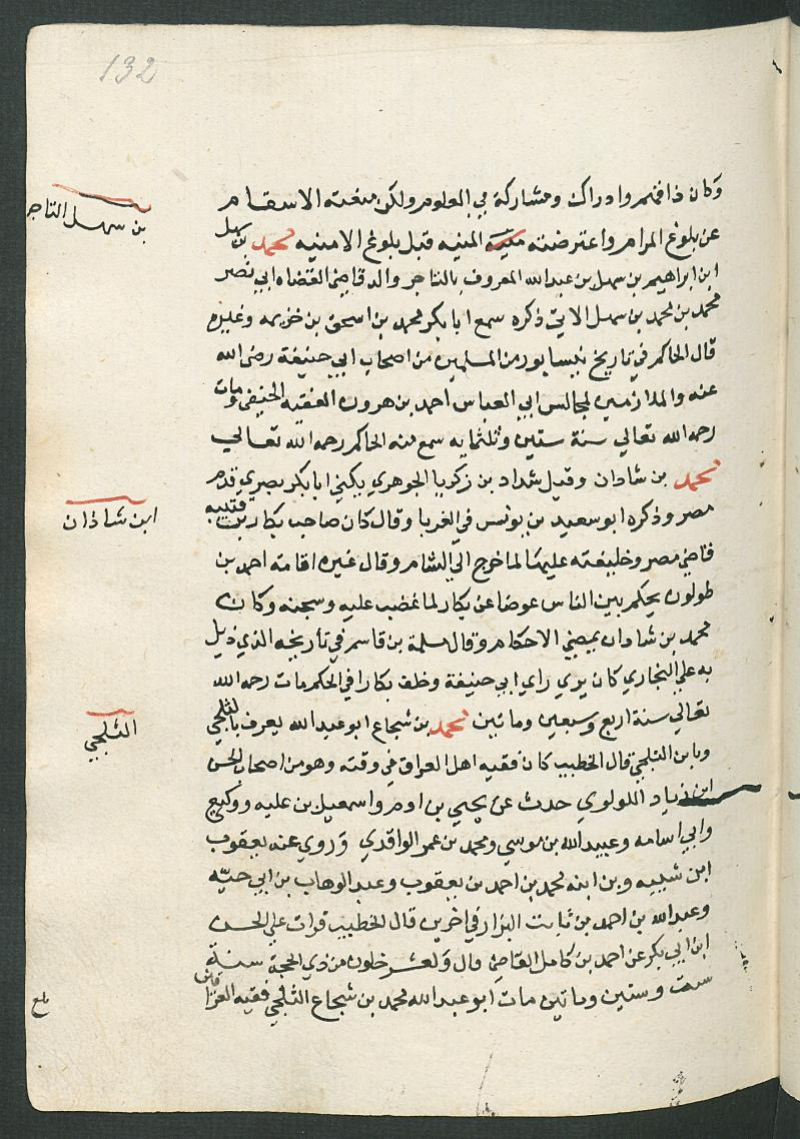 132
وكان ذا فهم وادراك ومشاركة في العلوم ولكن منعته الاسقام
عن بلوغ المرام واعترضته المنيه قبل بلوغ الامنيه محمد بن سهل
بن سهل التاجر
ابن ابراهيم بن سهل بن عبدالله المعروف بالتاجر والد قاضي القضاه ابي نصر
محمد بن محمد بن سهل الاتي ذكره سمع ابا بكر محمد بن اسحق بن خزيمه وغيره
قال الحاكم في تاريخ نيسابور من المسلمين من اصحاب ابي حنيفة رضي الله
عنه والملازمين لمجالس ابي العباس احمد بن هرون الفقيه الحنيفي ومات
رحمه الله تعالي سنة ستين وثلثمايه سمع منه الحاكم رحمه الله تعالي
محمد بن شادان وقيل شداد بن زكريا الجوهري يكني ابا بكر بصري قدم
ابن شاذان
مصر وذكره ابو سعيد بن يونس في الغربا وقال كان صاحب بكار بن قتيبه
قاضي مصر وخليفته عليها لما خرج الي الشام وقال غيره اقامه احمد بن
طولون يحكم بين الناس عوضا عن بكار لما غضب عليه وسجنه وكان
محمد بن شادان يمضي الاحكام وقال مسلمة بن قاسم في تأريخه الذي ذيل
به علي البخاري كان يري راي ابي حنيفة وخلف بكارا في الحكم مات رحمه الله
تعالي سنة اربع وسبعين وماتين محمد بن شجاع ابو عبد الله يعرف بالثلجي
الثلجي
وبابن الثلجي قال الخطيب كان فقيه اهل العراق في وقته وهو من اصحاب الحسن
ابن زياد اللولوي حدث عن يحيي بن ادم واسمعيل بن عليه ووكيع
وابي اسامه وعبيد الله بن موسي ومحمد بن عمر الواقدي وروي عنه يعقوب
ابن شيبه وبن ابنه محمد بن احمد بن يعقوب وعبد الوهاب بن ابي حيه
وعبد الله بن احمد بن ثابت البزار في اخرين قال الخطيب قرات علي الحسن
ابن ابي بكر عن احمد بن كامل القاضي قال ولعشر خلون من ذي الحجة سنة
ست وستين وماتين مات ابو عبد الله محمد بن شجاع الثلجي فقيه العراق
بلغ